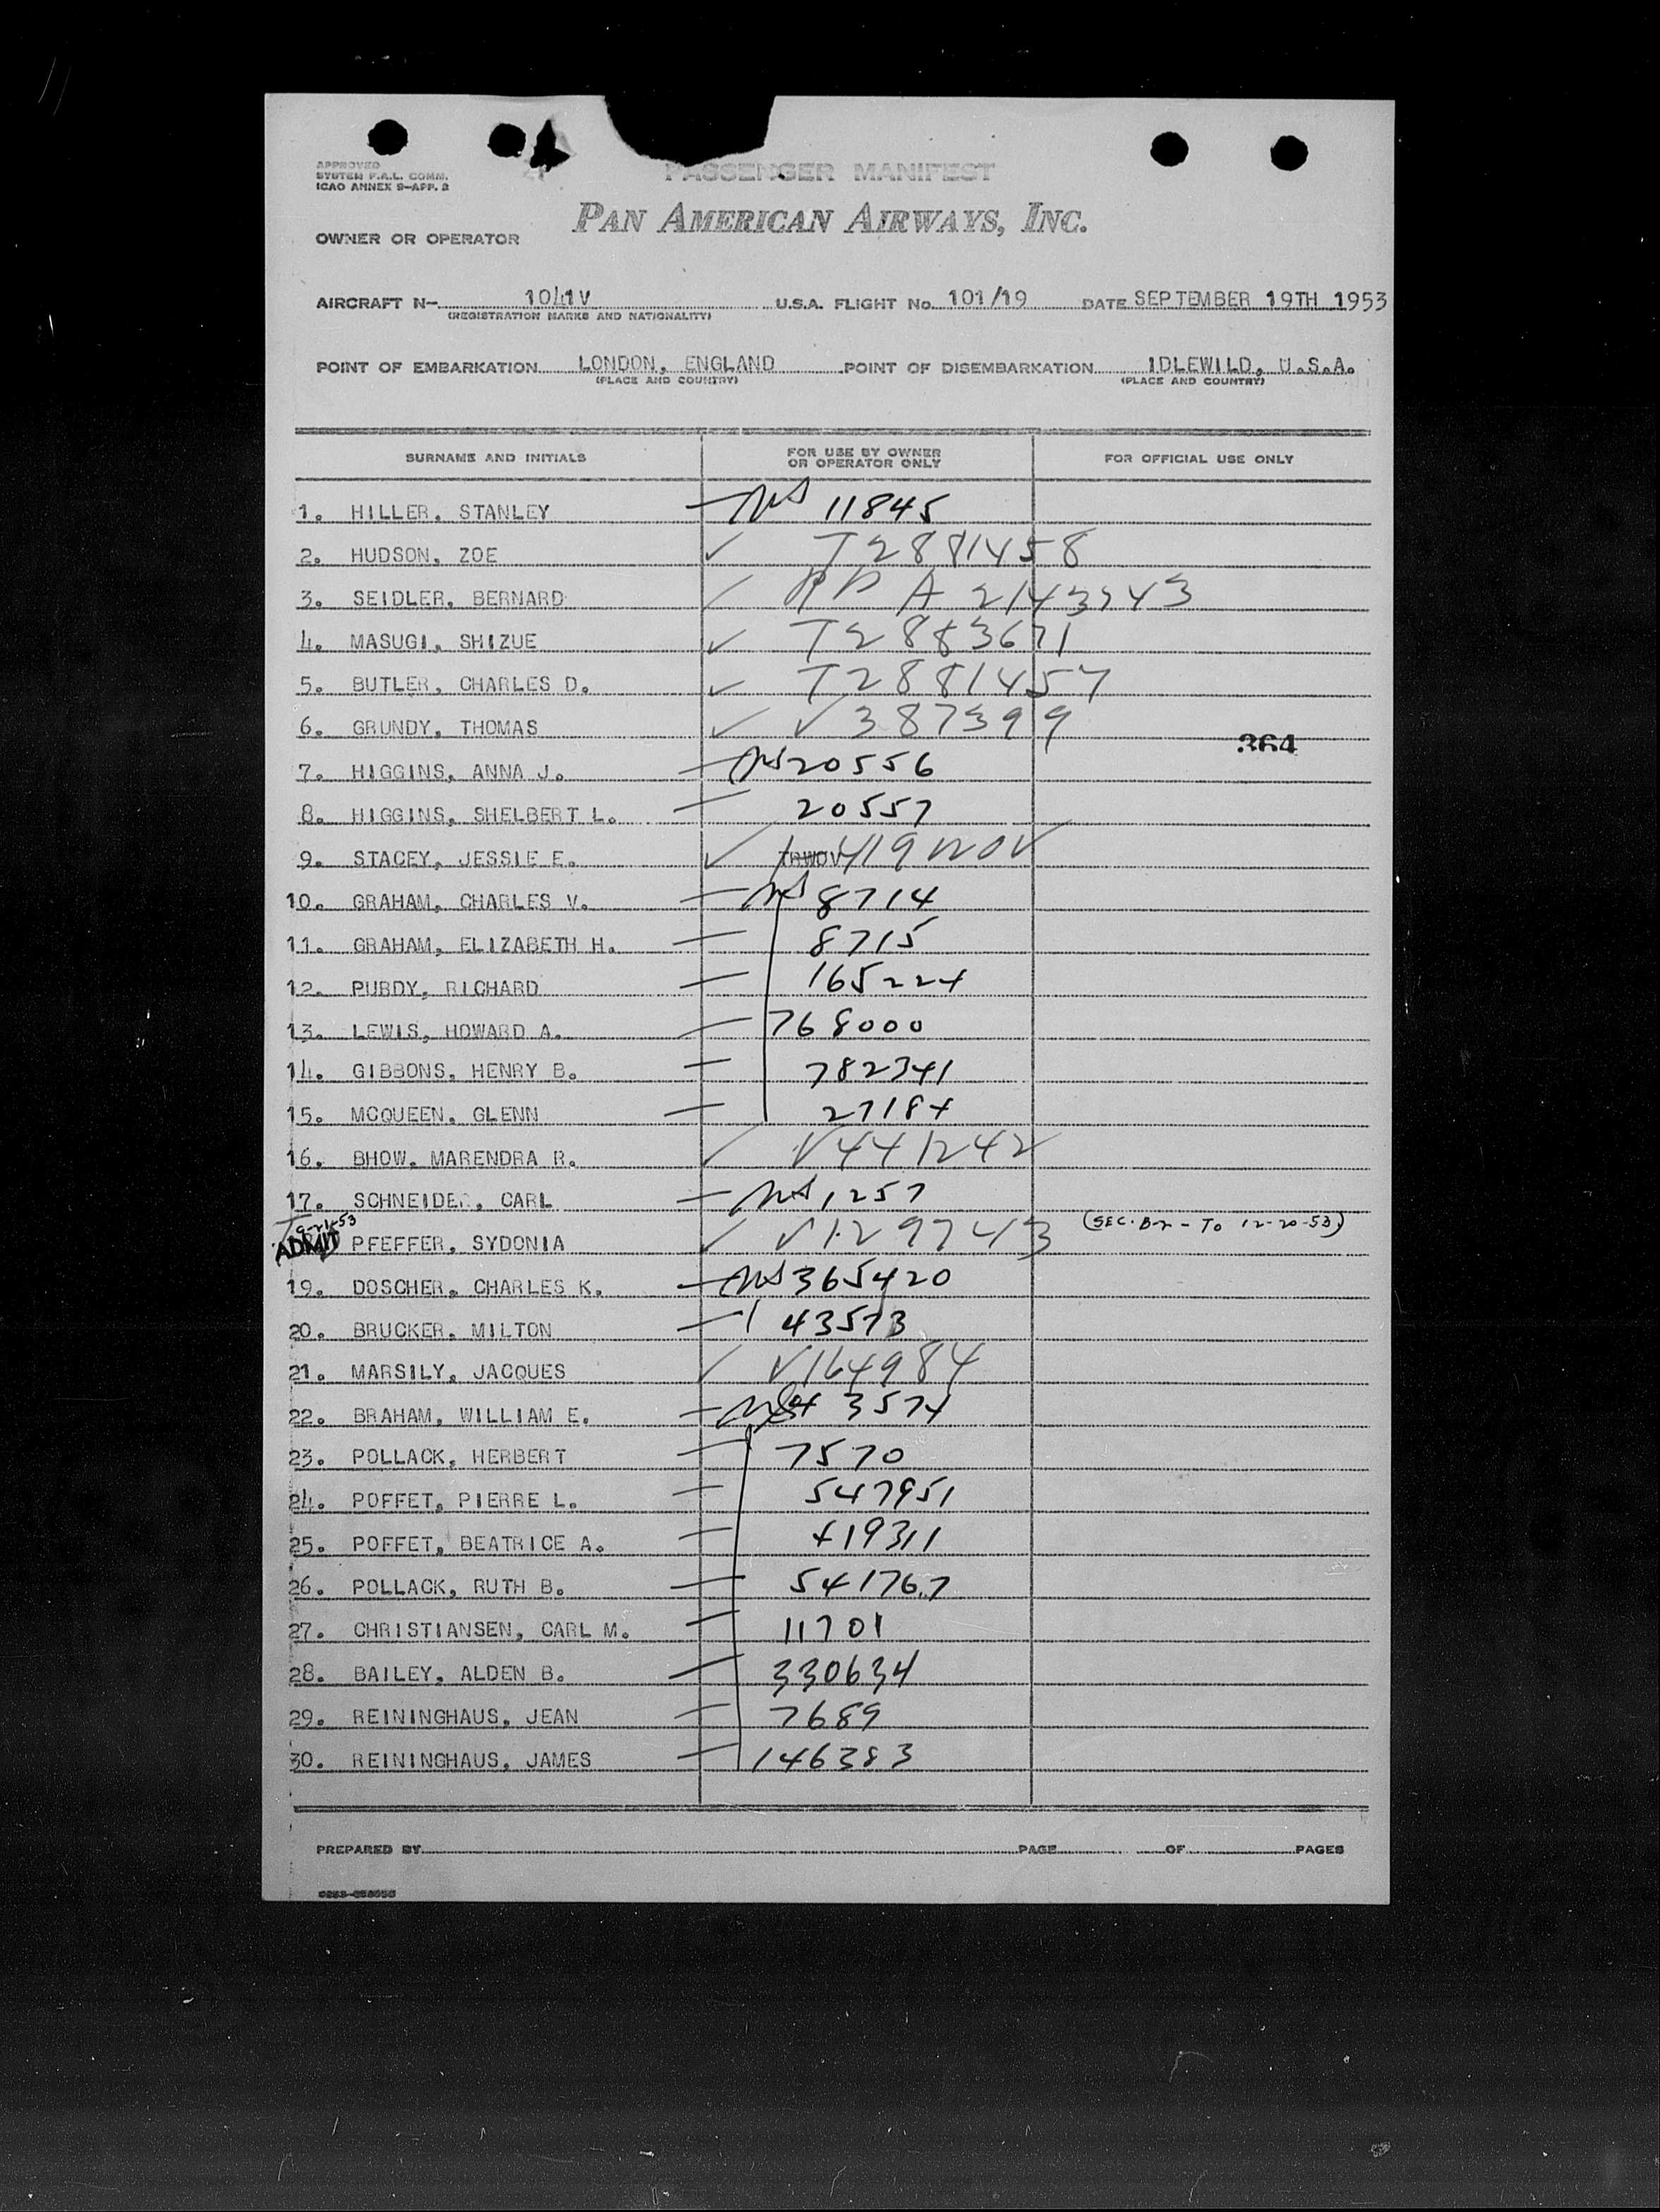 APPROVED
SYSTEM F.A.L. COMM.
ICAO ANNEX 9-APP. 2
PASSENGER MANIFEST
PAN AMERICAN AIRWAYS, INC.
OWNER OR OPERATOR
AIRCRAFT N- 1041V U.S.A. FLIGHT No. 101/19 DATE SEPTEMBER 19TH 1953
(REGISTRATION MARKS AND NATIONALITY)
POINT OF EMBARKATION LONDON, ENGLAND POINT OF DISEMBARKATION IDLEWILD, U.S.A.
(PLACE AND COUNTRY) (PLACE AND COUNTRY)
SURNAME AND INITIALS FOR USE BY OWNER OR OPERATOR ONLY FOR OFFICIAL USE ONLY
1. HILLER, STANLEY 11845
2. HUDSON, ZOE T2881458
3. SEIDLER, BERNARD A 2143943
4. MASUGI, SHIZUE T2883671
5. BUTLER, CHARLES D. T2881457
6. GRUNDY, THOMAS V 387399
364
7. HIGGINS, ANNA J. 20556
8. HIGGINS, SHELBERT L. 20557
9. STACEY, JESSIE E.
10. GRAHAM, CHARLES V. 8714
11. GRAHAM, ELIZABETH H. 8715
12. PURDY, RICHARD 165224
13. LEWIS, HOWARD A. 768000
14. GIBBONS, HENRY B. 782341
15. MCQUEEN, GLENN 27184
16. BHOW, MARENDRA R. V441242
17. SCHNEIDER, CARL 1257
9-21-53
ADMIT PFEFFER, SYDONIA V129743 (SEC. B-2 - TO 12-20-53)
19. DOSCHER, CHARLES K. 365420
20. BRUCKER, MILTON 43573
21. MARSILY, JACQUES V164984
22. BRAHAM, WILLIAM E. 3574
23. POLLACK, HERBERT 7570
24. POFFET, PIERRE L. 547951
25. POFFET, BEATRICE A. 419311
26. POLLACK, RUTH B. 541767
27. CHRISTIANSEN, CARL M. 11701
28. BAILEY, ALDEN B. 330634
29. REININGHAUS, JEAN 7689
30. REININGHAUS, JAMES 146383
PREPARED BY PAGE OF PAGES